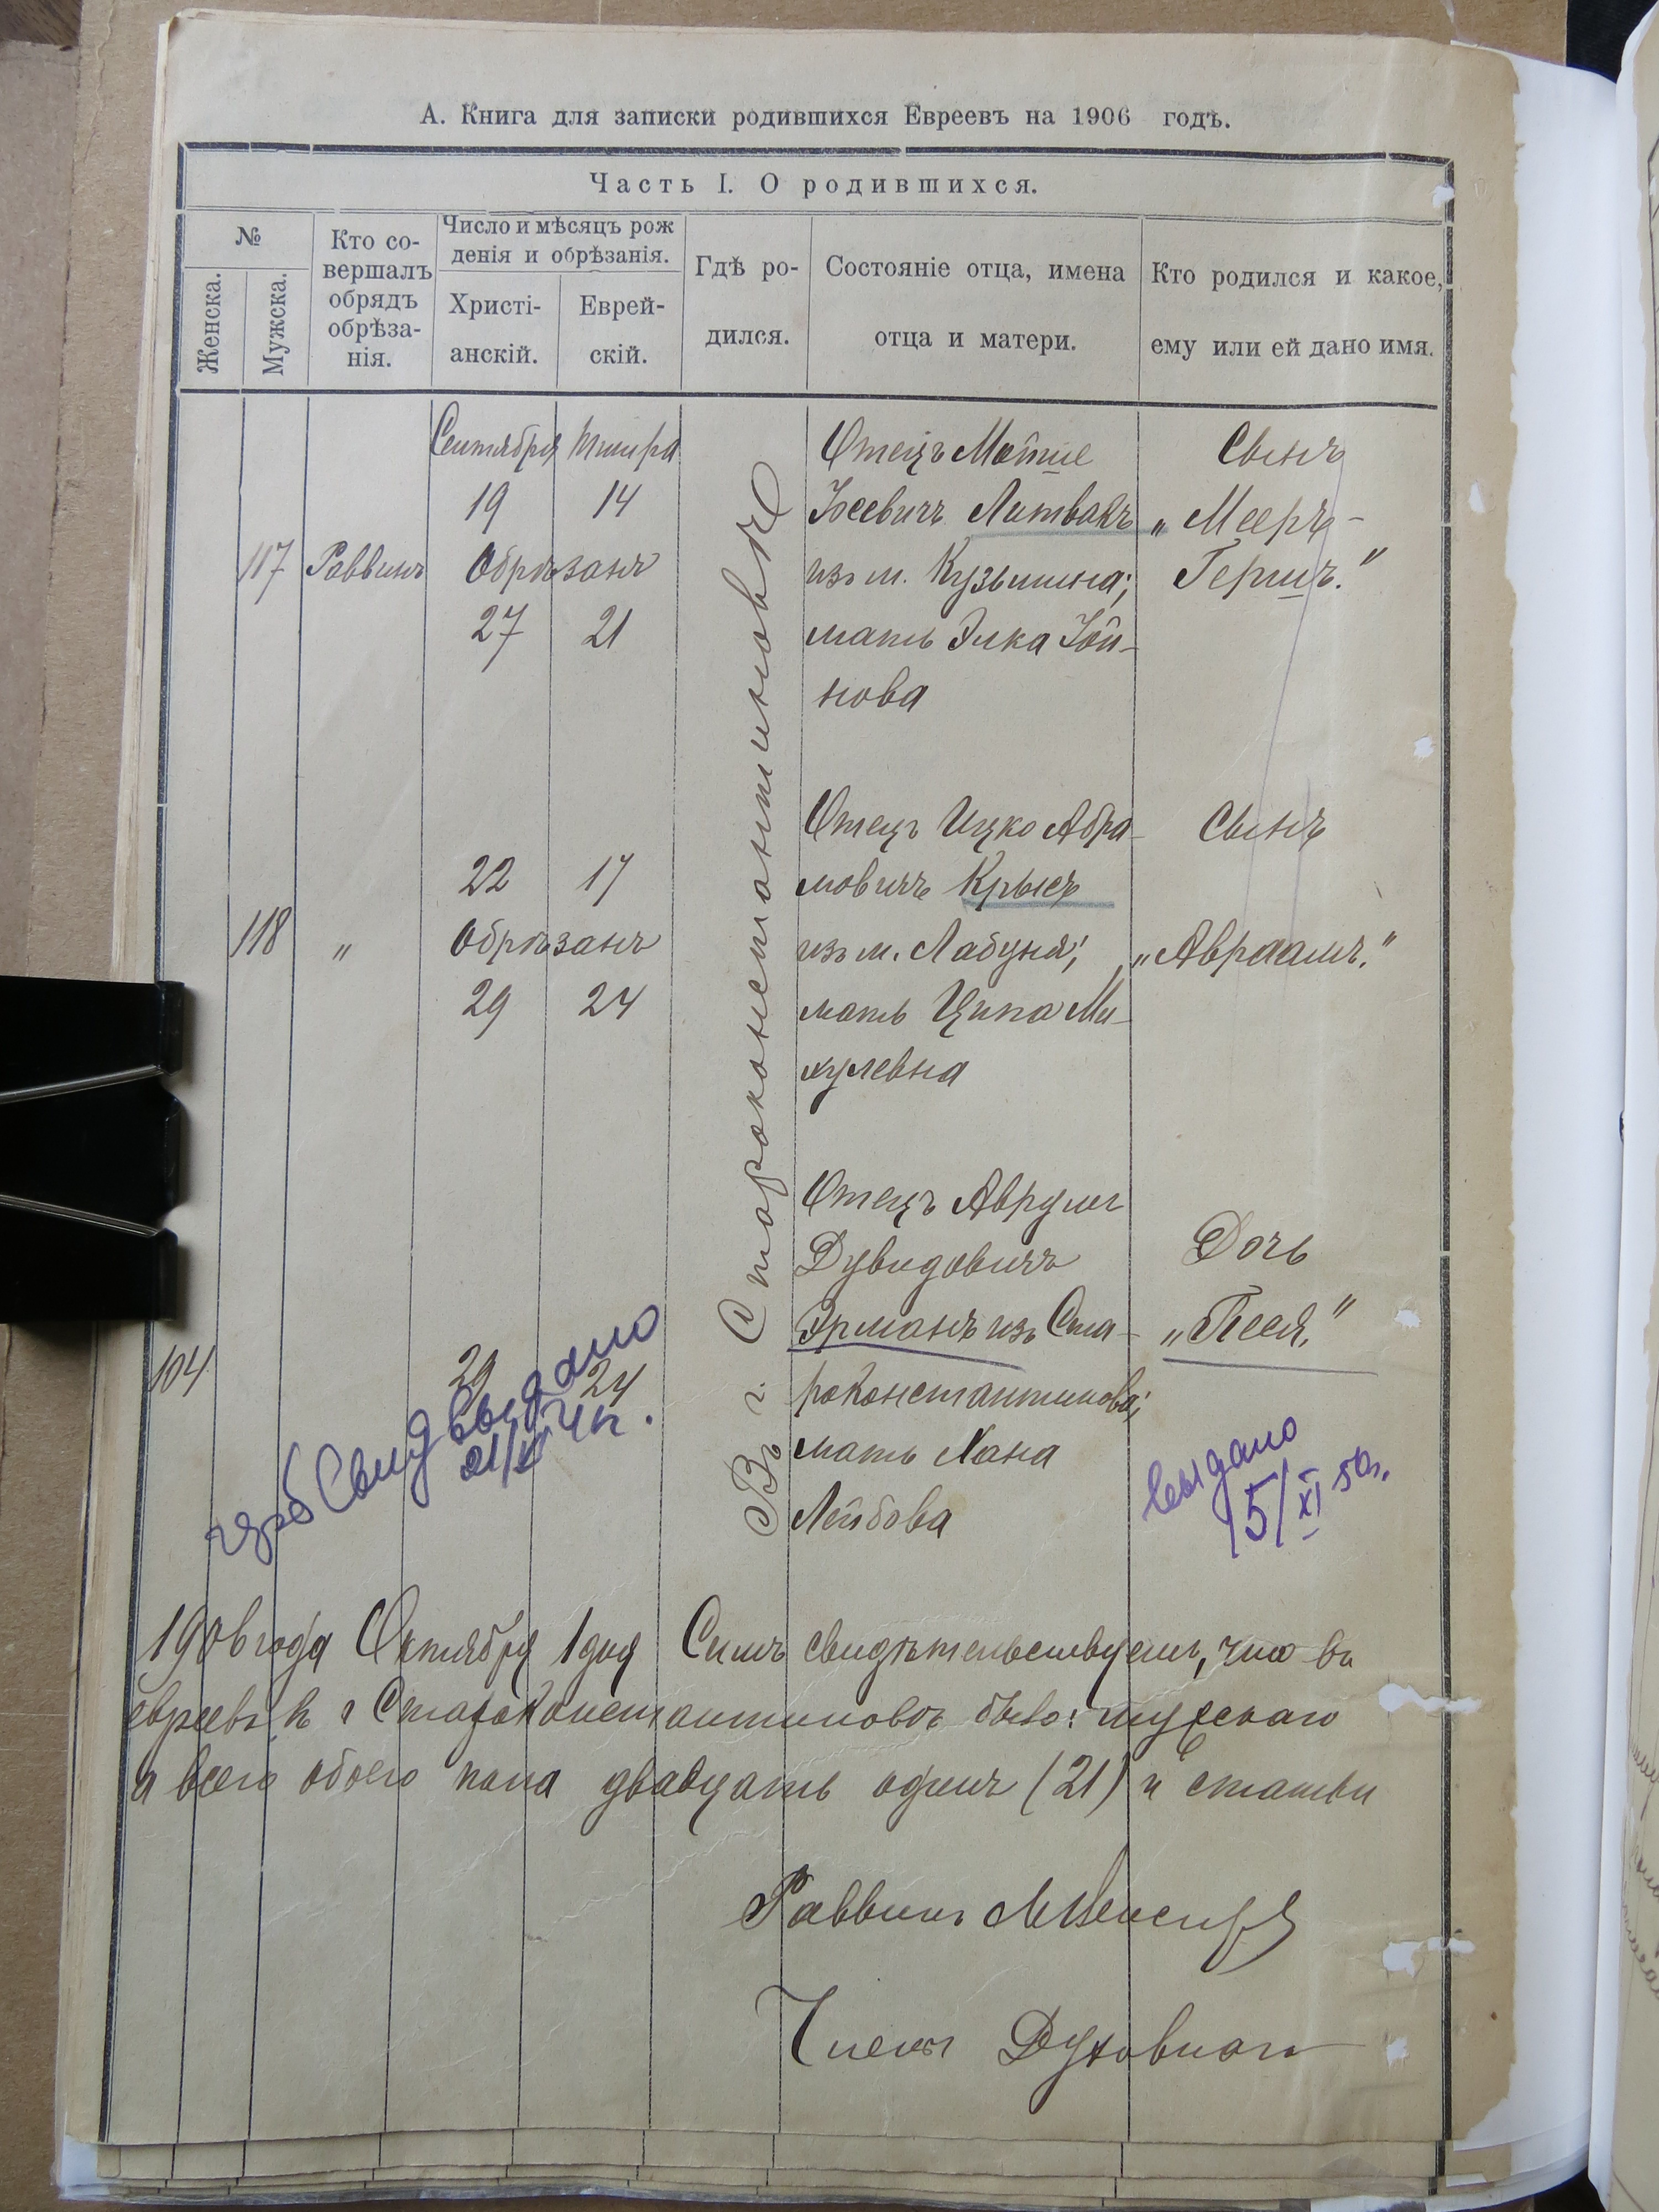 А. Книга для записки родившихся Евреевъ на 1906 годъ.
Часть I. О родившихся.
№
Женска.
Мужска.
Кто со-
вершалъ
обрядъ
обрѣза-
нія.
Число и мѣсяцъ рож
денія и обрѣзанія.
Христі-
анскій.
Еврей-
скій.
Гдѣ ро-
дился.
Состояніе отца, имена
отца и матери.
Кто родился и какое,
ему или ей дано имя.
Сентября Тишра
19 14
117 Раввинъ Обрѣзанъ
27 21
Отецъ Мотше
Іосевичъ Литвакъ
изъ м. Кузьмина;
мать Элка Іой-
нова
Сынъ
„Мееръ-
Гершъ."
22 17
118 „ Обрѣзанъ
29 24
Отецъ Ицко Абра-
мовичъ Крысъ
изъ м. Лабуня;
мать Ципа Ми-
хулевна
Сынъ
„Авраамъ."
104 29 24
Въ г. Староконстантиновѣ
Отецъ Аврумъ
Дувидовичъ
Эрманъ изъ Ста-
роконстантинова;
мать Хана
Лейбова
Дочь
„Песя."
Свид выдано
21/
выдано
15/XI 50г.
1906 года Октября 1 дня Симъ свидѣтельствуемъ, что въ
евреевъ въ г Староконстантиновѣ было: мужскаго
а всего обоего пола двадцать одинъ (21) и статьи
Раввинъ
Членъ Духовнаго